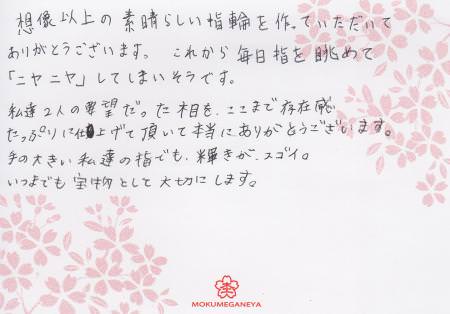 想像以上の素晴らしい指輪を作っていただいて
ありがとうございます。これから毎日指を眺めて
「ニヤニヤ」してしまいそうです。
私達2人の要望だった木目を、ここまで存在感
たっぷりに仕上げて頂いて本当にありがとうございます。
手の大きい私達の指でも、輝きが、スゴイ。
いつまでも宝物として大切にします。
MOKUMEGANEYA